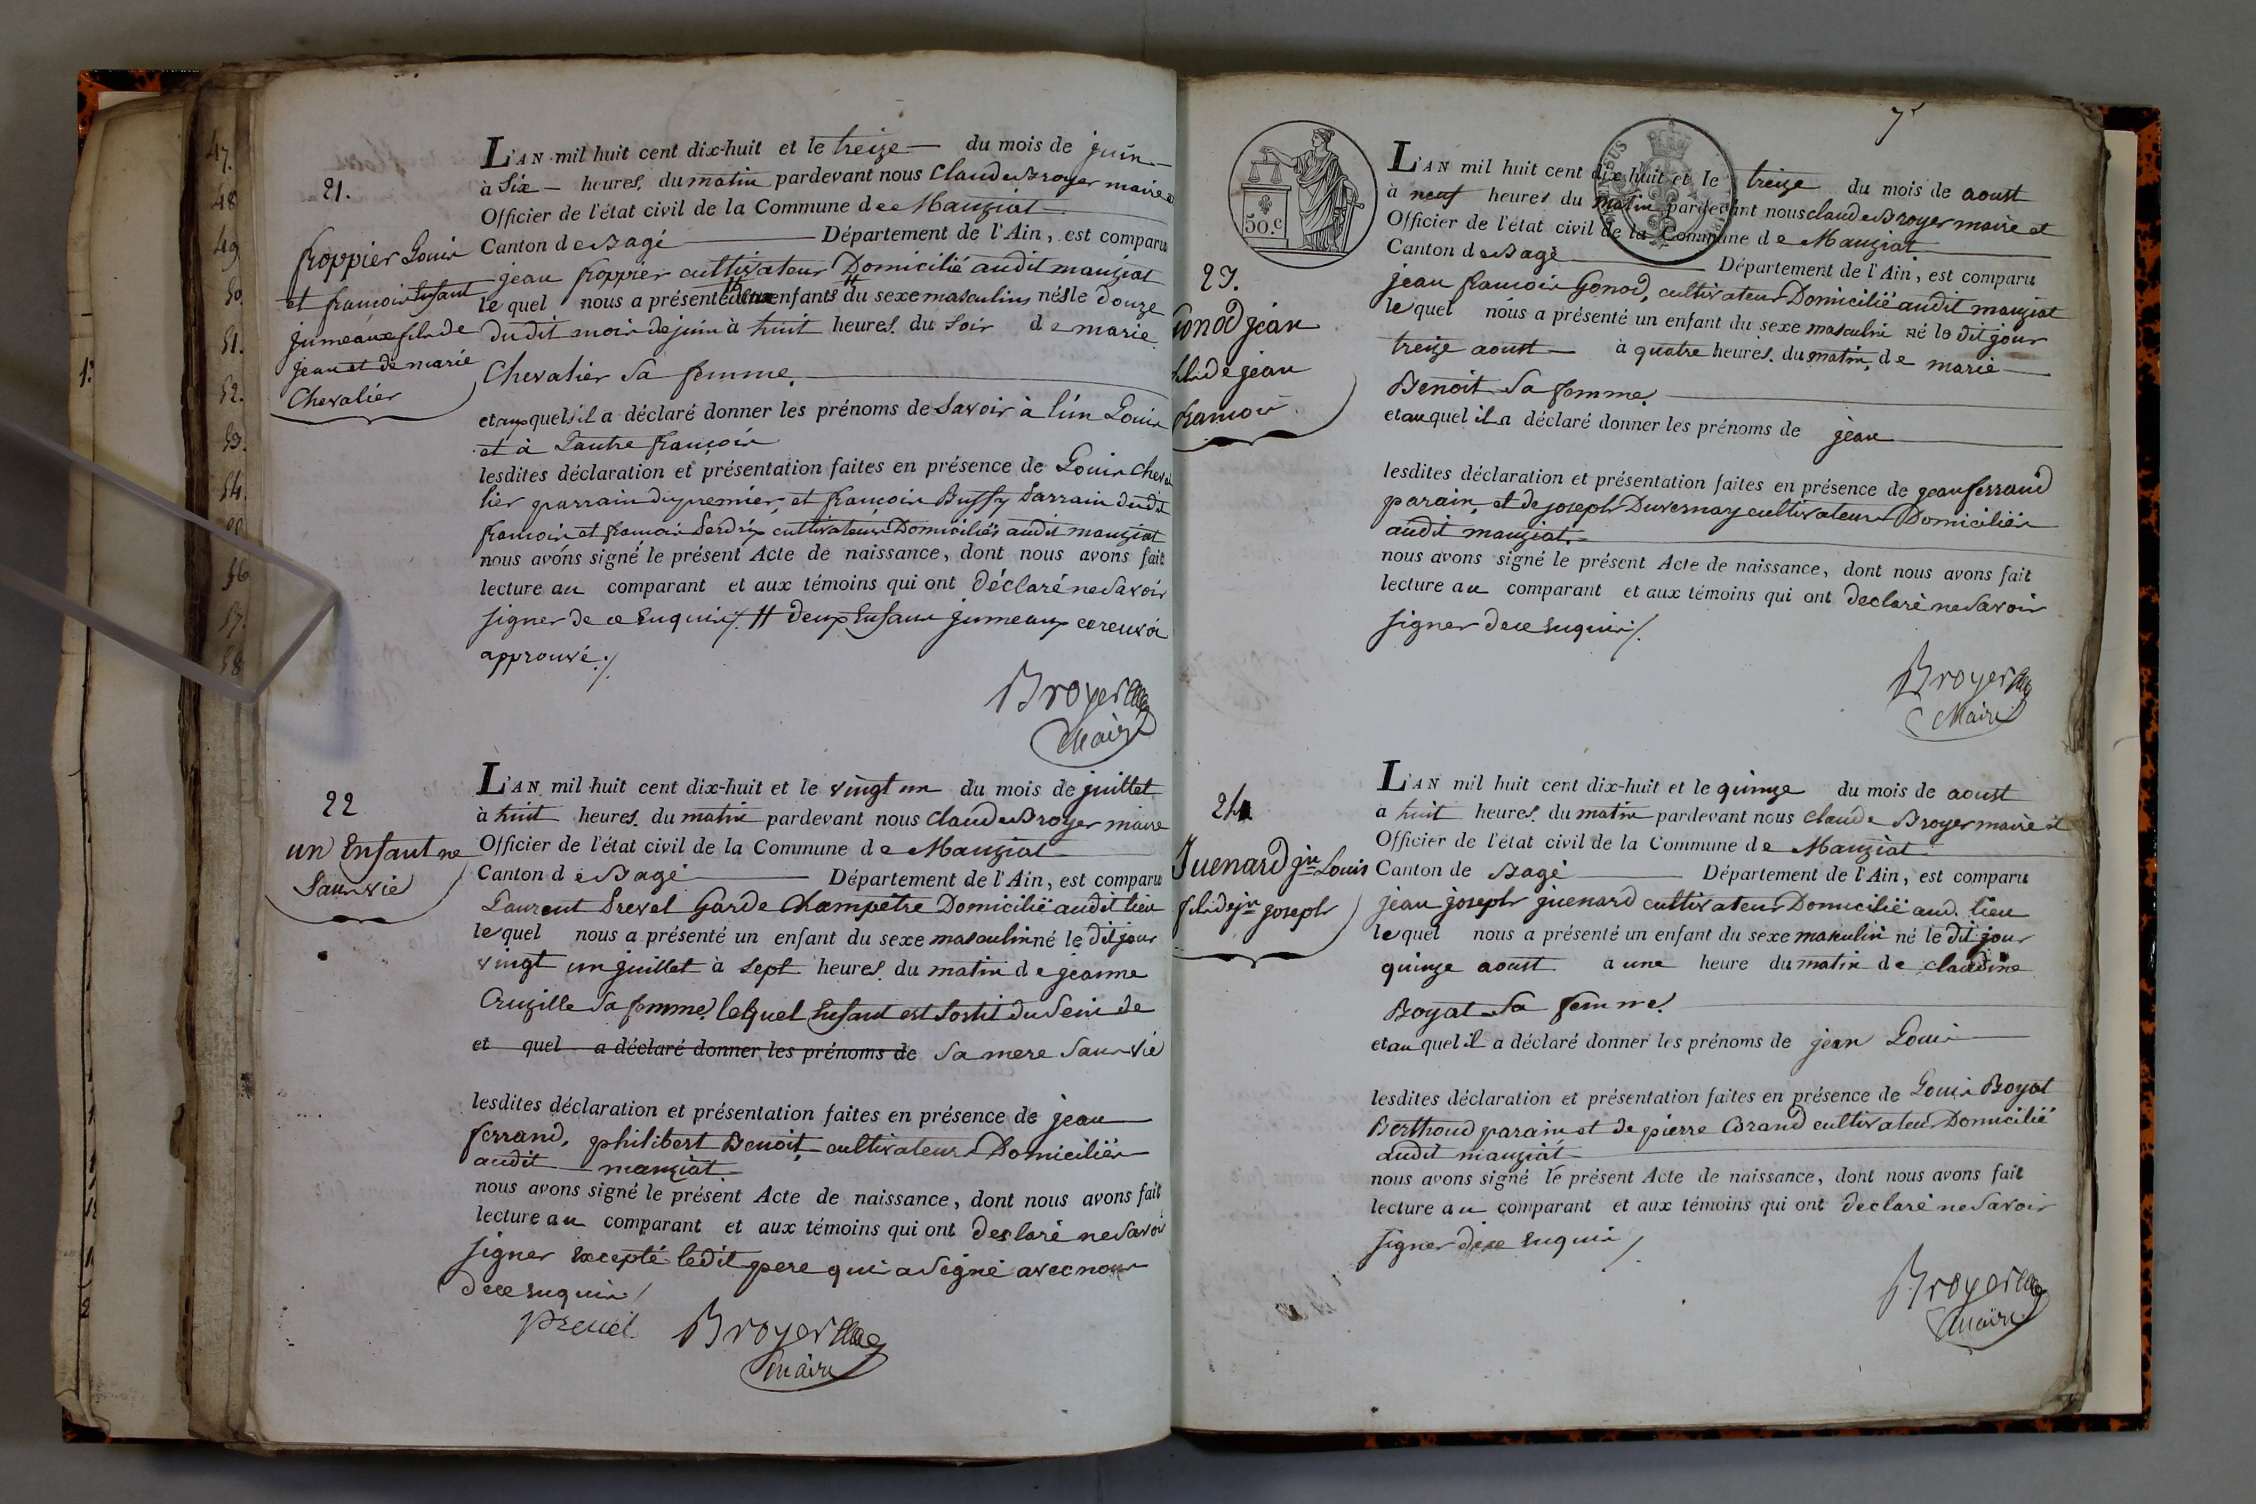 47.
48
49
50.
51.
52.
53.
54.
56
57.
58
21.
froppier Louis
et francois Enfant
jumeaux fils de
jean et de marie
Chevalier
L'AN mil huit cent dix-huit et le treize du mois de juin
à Six heures du matin pardevant nous Claude Broyer maire et
Officier de l'état civil de la Commune de Manziat
Canton de Bagé Département de l'Ain, est comparu
jean froppier cultivateur Domicilié audit manziat
le quel nous a présenté deux enfants // du sexe masculins nés le douze
dudit mois de juin à huit heures du soir de marie
Chevalier sa femme.
et auxquels il a déclaré donner les prénoms de Savoir à l'un Louis
et à Lautre françois
lesdites déclaration et présentation faites en présence de Louis cheva
lier parrain du premier, et francois Buffy parrain dudit
francois et francois cultivateurs Domiciliés audit manziat
nous avons signé le présent Acte de naissance, dont nous avons fait
lecture au comparant et aux témoins qui ont déclaré ne Savoir
signer de ce Enquis /. // deux Enfans jumeaux ce renvoi
approuvé ./.
Broyer
Maire
22
un Enfant ne
Sans vie
L'AN mil huit cent dix-huit et le vingt un du mois de juillet
à huit heures du matin pardevant nous Claude Broyer maire
Officier de l'état civil de la Commune de Manziat
Canton de Bagé Département de l'Ain, est comparu
Laurent Prevel Garde Champêtre Domicilié audit lieu
le quel nous a présenté un enfant du sexe masculin né le dit jour
vingt un juillet à sept heures du matin de jeanne
Cruzille sa femme lequel Enfant est Sortit du Sein de
et quel a déclaré donner les prénoms de Sa mere Sans vie
lesdites déclaration et présentation faites en présence de jean
ferrand, philibert Benoit cultivateurs Domiciliés
audit manziat
nous avons signé le présent Acte de naissance, dont nous avons fait
lecture au comparant et aux témoins qui ont declaré ne Savoir
signer Excepté ledit pere qui a Signé avec nous
de ce enquis /
Prevel Broyer
maire
7
50.c
23.
Gonod jean
fils de jean
francois
L'AN mil huit cent dix-huit et le treize du mois de aoust
à neuf heures du matin pardevant nous claude Broyer maire et
Officier de l'état civil de la Commune de Manziat
Canton de Bagé Département de l'Ain, est comparu
jean francois Gonod, cultivateur Domicilié audit manziat
le quel nous a présenté un enfant du sexe masculin né le dit jour
treize aoust à quatre heures du matin, de marie
Benoit Sa femme
et au quel il a déclaré donner les prénoms de jean
lesdites déclaration et présentation faites en présence de jean ferrand
parain, et de joseph Duvernay cultivateurs Domiciliés
audit manziat.
nous avons signé le présent Acte de naissance, dont nous avons fait
lecture au comparant et aux témoins qui ont declaré ne Savoir
signer de ce enquis /.
Broyer
Maire
24
Juenard jn Louis
fils de jn joseph
L'AN mil huit cent dix-huit et le quinze du mois de aoust
a huit heures du matin pardevant nous claude Broyer maire et
Officier de l'état civil de la Commune de Manziat
Canton de Bagé Département de l'Ain, est comparu
jean joseph juenard cultivateur Domicilié aud. lieu
le quel nous a présenté un enfant du sexe masculin né le dit jour
quinze aoust a une heure du matin de claudine
Boyat Sa femme
et au quel il a déclaré donner les prénoms de jean Louis
lesdites déclaration et présentation faites en présence de Louis Boyat
Berthoud parain et de pierre Corand cultivateurs Domicilié
audit manziat
nous avons signé le présent Acte de naissance, dont nous avons fait
lecture au comparant et aux témoins qui ont declaré ne Savoir
signer de ce enquis /.
Broyer
maire